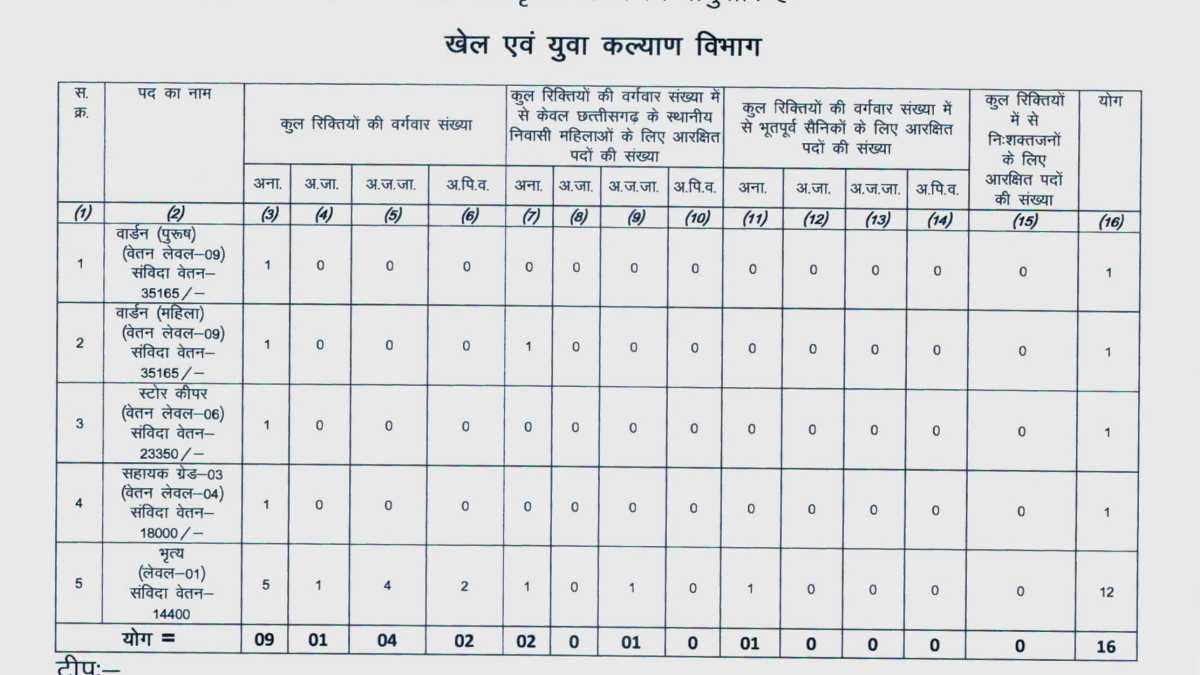 खेल एवं युवा कल्याण विभाग
स. क्र. पद का नाम कुल रिक्तियों की वर्गवार संख्या कुल रिक्तियों की वर्गवार संख्या में से केवल छत्तीसगढ़ के स्थानीय निवासी महिलाओं के लिए आरक्षित पदों की संख्या कुल रिक्तियों की वर्गवार संख्या में से भूतपूर्व सैनिकों के लिए आरक्षित पदों की संख्या कुल रिक्तियों में से निःशक्तजनों के लिए आरक्षित पदों की संख्या योग
अना. अ.जा. अ.ज.जा. अ.पि.व. अना. अ.जा. अ.ज.जा. अ.पि.व. अना. अ.जा. अ.ज.जा. अ.पि.व.
(1) (2) (3) (4) (5) (6) (7) (8) (9) (10) (11) (12) (13) (14) (15) (16)
1 वार्डन (पुरूष) (वेतन लेवल–09) संविदा वेतन– 35165/– 1 0 0 0 0 0 0 0 0 0 0 0 0 1
2 वार्डन (महिला) (वेतन लेवल–09) संविदा वेतन– 35165/– 1 0 0 0 1 0 0 0 0 0 0 0 0 1
3 स्टोर कीपर (वेतन लेवल–06) संविदा वेतन– 23350/– 1 0 0 0 0 0 0 0 0 0 0 0 0 1
4 सहायक ग्रेड–03 (वेतन लेवल–04) संविदा वेतन– 18000/– 1 0 0 0 0 0 0 0 0 0 0 0 0 1
5 भृत्य (लेवल–01) संविदा वेतन– 14400 5 1 4 2 1 0 1 0 1 0 0 0 0 12
योग = 09 01 04 02 02 0 01 0 01 0 0 0 0 16
टीपः–